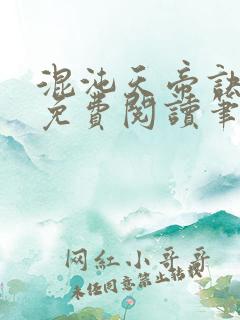 混沌天帝訣
免費閱讀筆
网红小哥哥
未经同意禁止转载